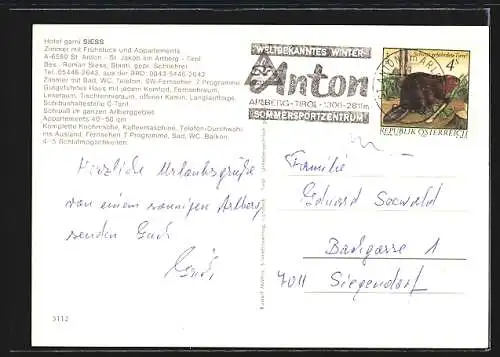 Hotel garni SIESS
Zimmer mit Frühstück und Appartements
A-6580 St. Anton - St. Jakob am Arlberg - Tirol
Bes.: Roman Siess, Staatl. gepr. Schilehrer
Tel. 05446-2643, aus der BRD: 0043-5446-2643
Zimmer mit Bad, WC, Telefon, SW-Fernseher 2 Programme
Gutgeführtes Haus mit jedem Komfort, Fernsehraum,
Leseraum, Tischtennisraum, offener Kamin, Langlaufloipe
Schibushaltestelle
Schipaß im ganzen Arlberggebiet
Appartements 40-50 qm
Komplette Kochnische, Kaffeemaschine, Telefon-Durchwahl
ins Ausland, Fernsehen 7 Programme, Bad, WC, Balkon,
4-5 Schlafmöglichkeiten.
WELTBEKANNTES WINTER-
St. Anton
ARLBERG-TIROL · 1300-2811m
SOMMERSPORTZENTRUM
4
REPUBLIK ÖSTERREICH
Herzliche Urlaubsgrüße
von einem sonnigen Arlberg
senden Euch
Familie
Eduard Seewald
Backgasse 1
7011 Siegendorf
3112